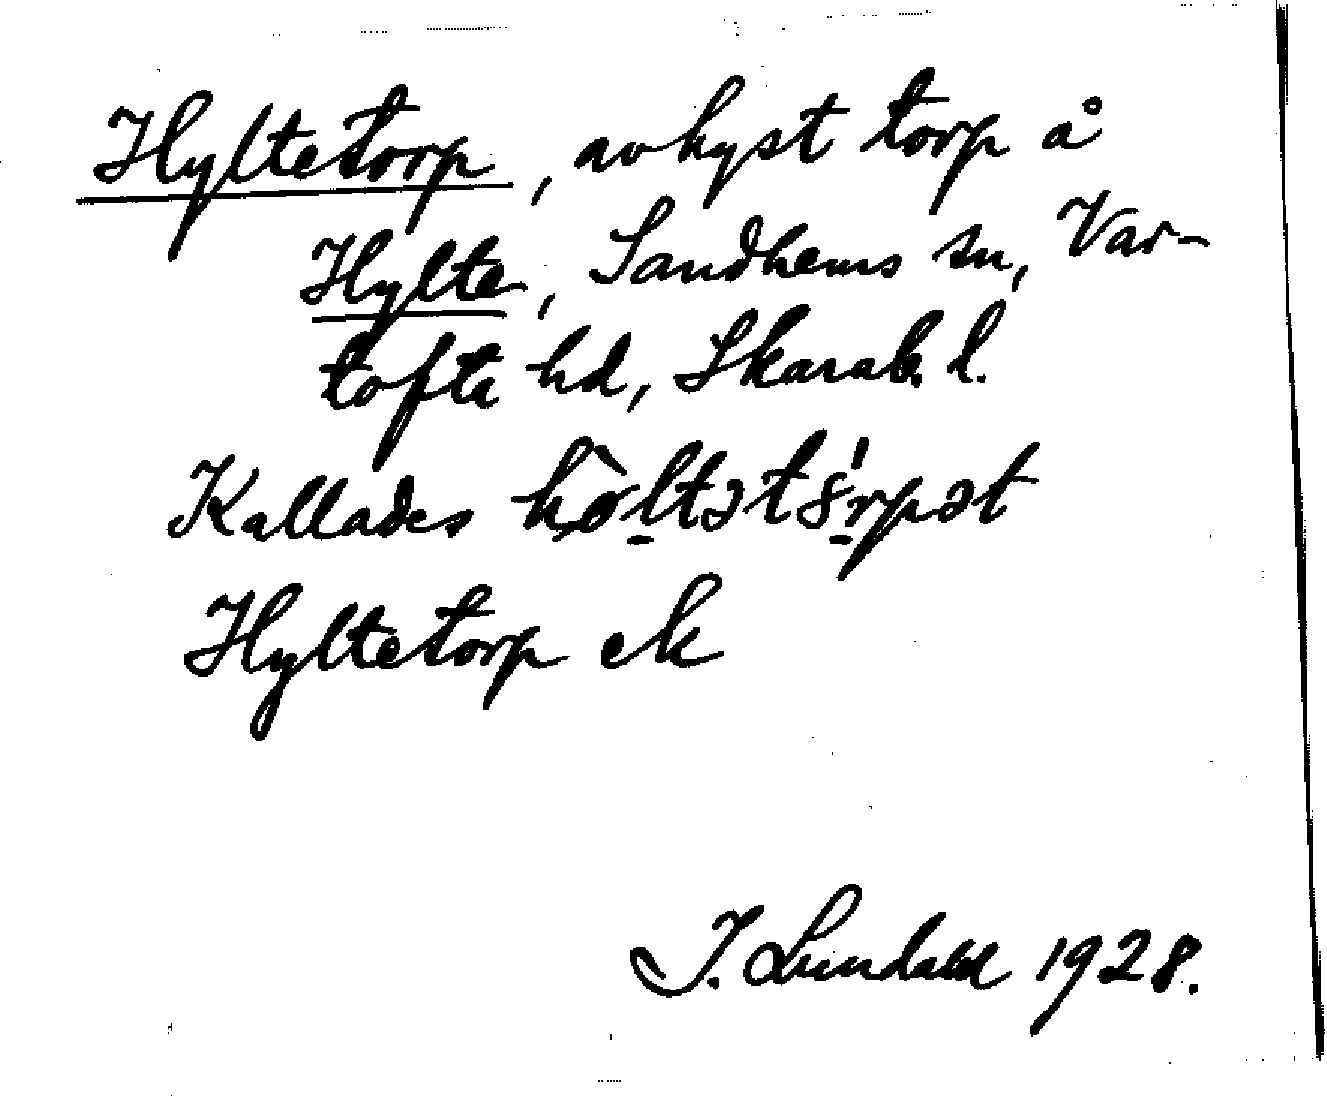 Hyltetorp, avhyst torp å
Hylte, Sandhems sn, Var-
tofta hd, Skarab. l.
Kallades
Hyltetorp ek
I. Lundahl 1928.